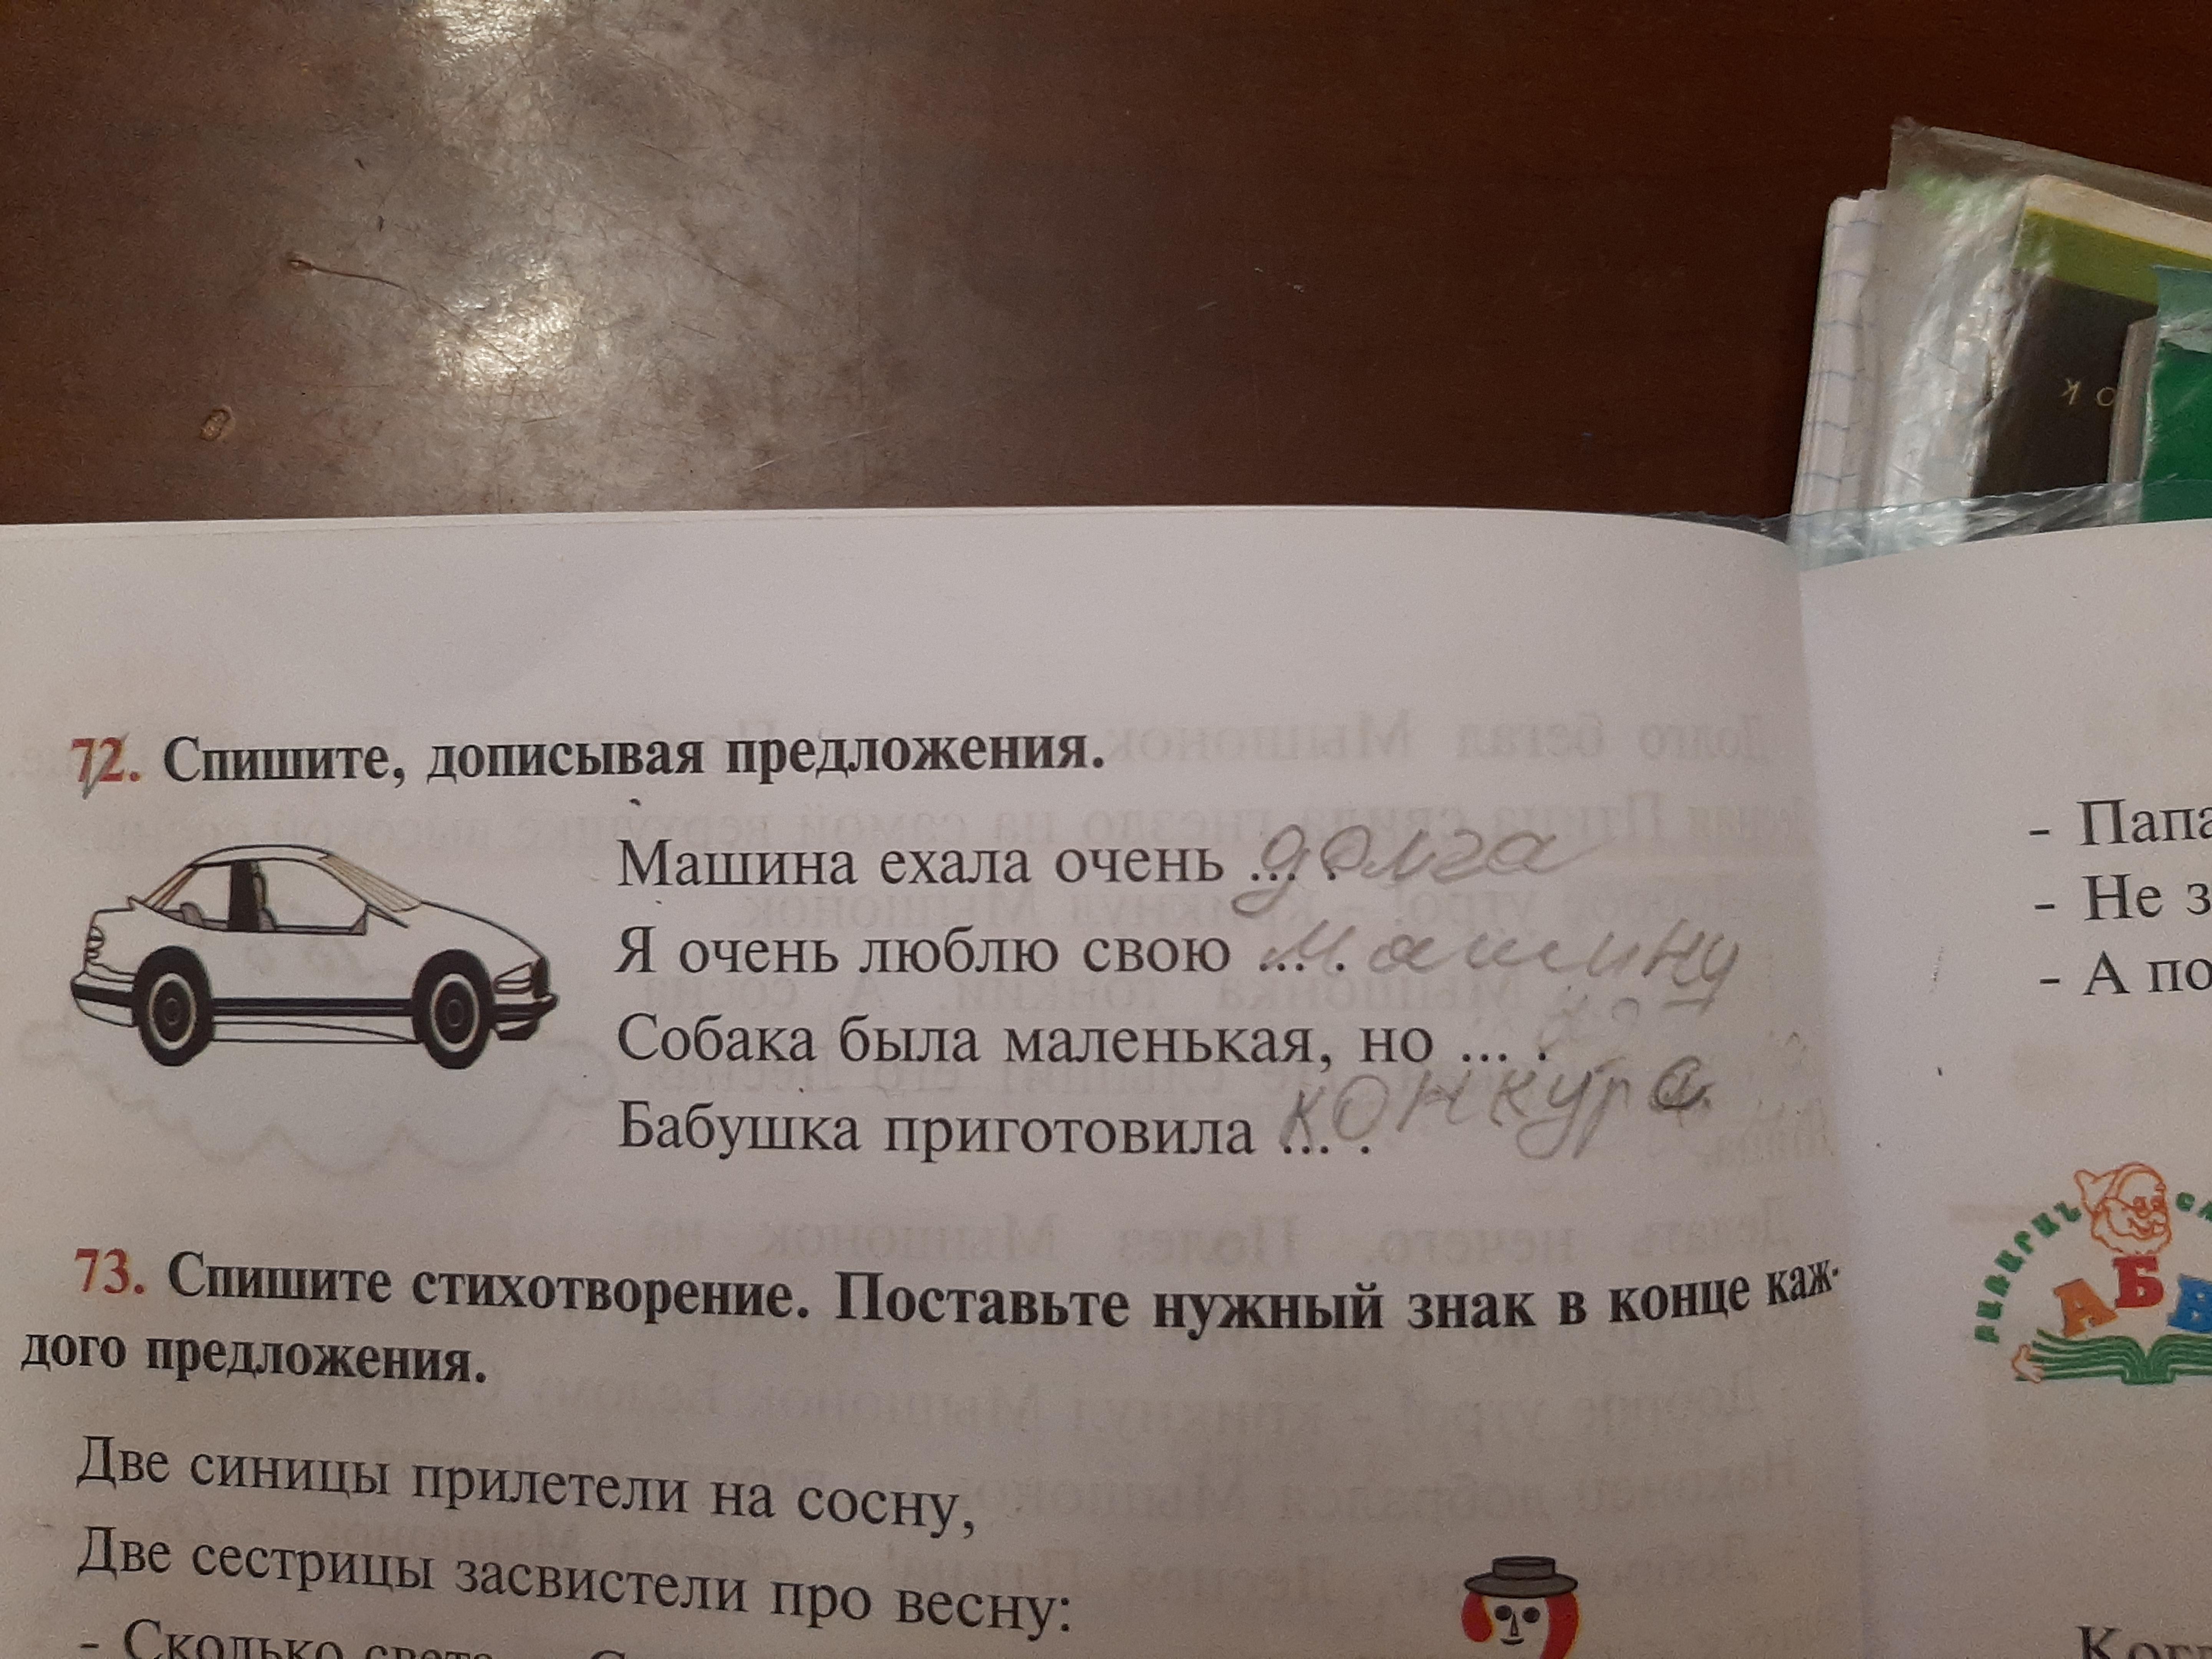 72. Спишите, дописывая предложения.
Машина ехала очень ... . долга
Я очень люблю свою ... . машину
Собака была маленькая, но ... .
Бабушка приготовила ... . конкура
73. Спишите стихотворение. Поставьте нужный знак в конце каж-
дого предложения.
Две синицы прилетели на сосну,
Две сестрицы засвистели про весну:
- Сколько света
- Папа
- Не з
- А по
ԲԱՌԱՐԱՆ
АБВ